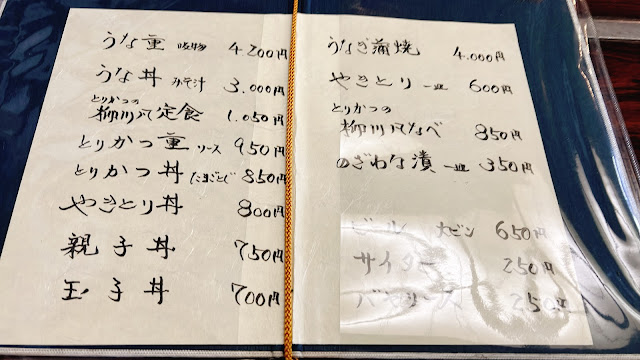 うな重 吸物 4.200円
うな丼 みそ汁 3.000円
とりかつの
柳川風定食 1.050円
とりかつ重 ソース 950円
とりかつ丼 たまごとじ 850円
やきとり丼 800円
親子丼 750円
玉子丼 700円
うなぎ蒲焼 4.000円
やきとり 一皿 600円
とりかつの
柳川風なべ 850円
のざわな漬 一皿 350円
ビール 大ビン 650円
サイダー 250円
250円